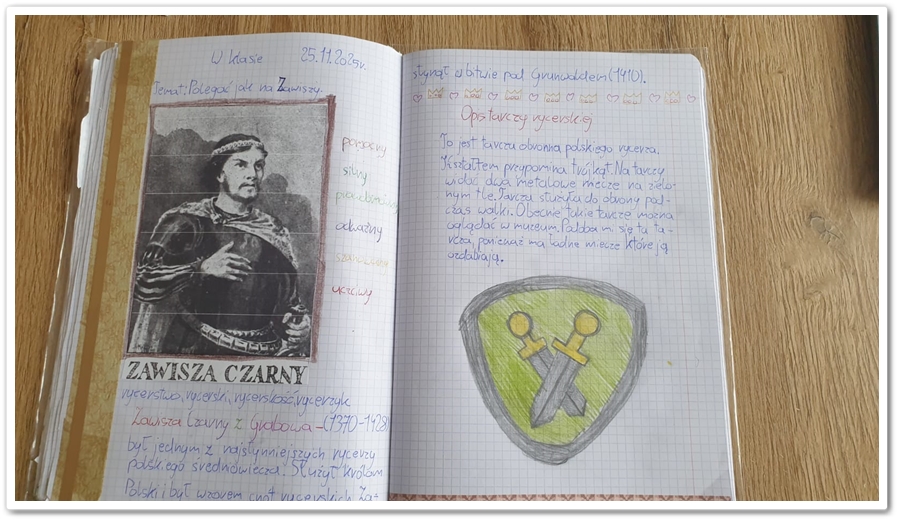 W klasie 25.11.2025r.
Temat: Polegać jak na Zawiszy.
pomocny
silny
prawdomówny
odważny
szanowany
uczciwy
ZAWISZA CZARNY
rycerstwo, rycerski, rycerskość, rycerzyk
Zawisza Czarny z Grabowa - (1370-1428)
był jednym z najsłynniejszych rycerzy
polskiego średniowiecza. Służył królom
Polski i był wzorem cnót rycerskich. Za-
słynął w bitwie pod Grunwaldem (1410).
Opis tarczy rycerskiej
To jest tarcza obronna polskiego rycerza.
Kształtem przypomina trójkąt. Na tarczy
widać dwa metalowe miecze na zielo-
nym tle. Tarcza służyła do obrony pod-
czas walki. Obecnie takie tarcze można
oglądać w muzeum. Podoba mi się ta ta-
rcza, ponieważ ma ładne miecze które ją
ozdabiają.